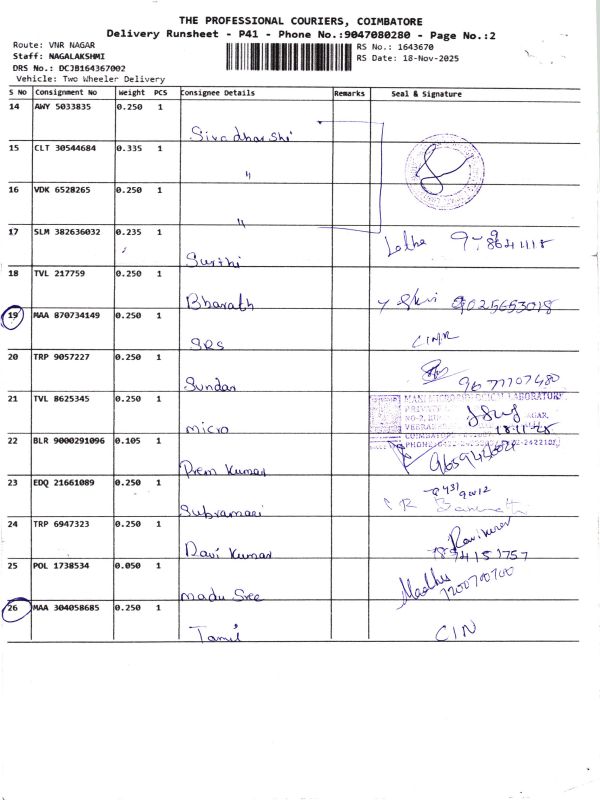 THE PROFESSIONAL COURIERS, COIMBATORE
Delivery Runsheet - P41 - Phone No.:9047080280 - Page No.:2
Route: VNR NAGAR
Staff: NAGALAKSHMI
DRS No.: DCJB164367002
Vehicle: Two Wheeler Delivery
RS No.: 1643670
RS Date: 18-Nov-2025
S No Consignment No Weight PCS Consignee Details Remarks Seal & Signature
14 AWY 5033835 0.250 1
Sivadharshi
15 CLT 30544684 0.335 1
"
16 VDK 6528265 0.250 1
"
17 SLM 382636032 0.235 1
Surthi
18 TVL 217759 0.250 1
Bharath 9025653018
19 MAA 870734149 0.250 1
SRS
20 TRP 9057227 0.250 1
Sundar 9677707480
21 TVL 8625345 0.250 1
micro 18.11.25
22 BLR 9000291096 0.105 1
Prem Kumar
23 EDQ 21661089 0.250 1
Subramani
24 TRP 6947323 0.250 1
Ravikumar
25 POL 1738534 0.050 1
Madhu
madu Sree 7200700700
26 MAA 304058685 0.250 1
Tamil CIN